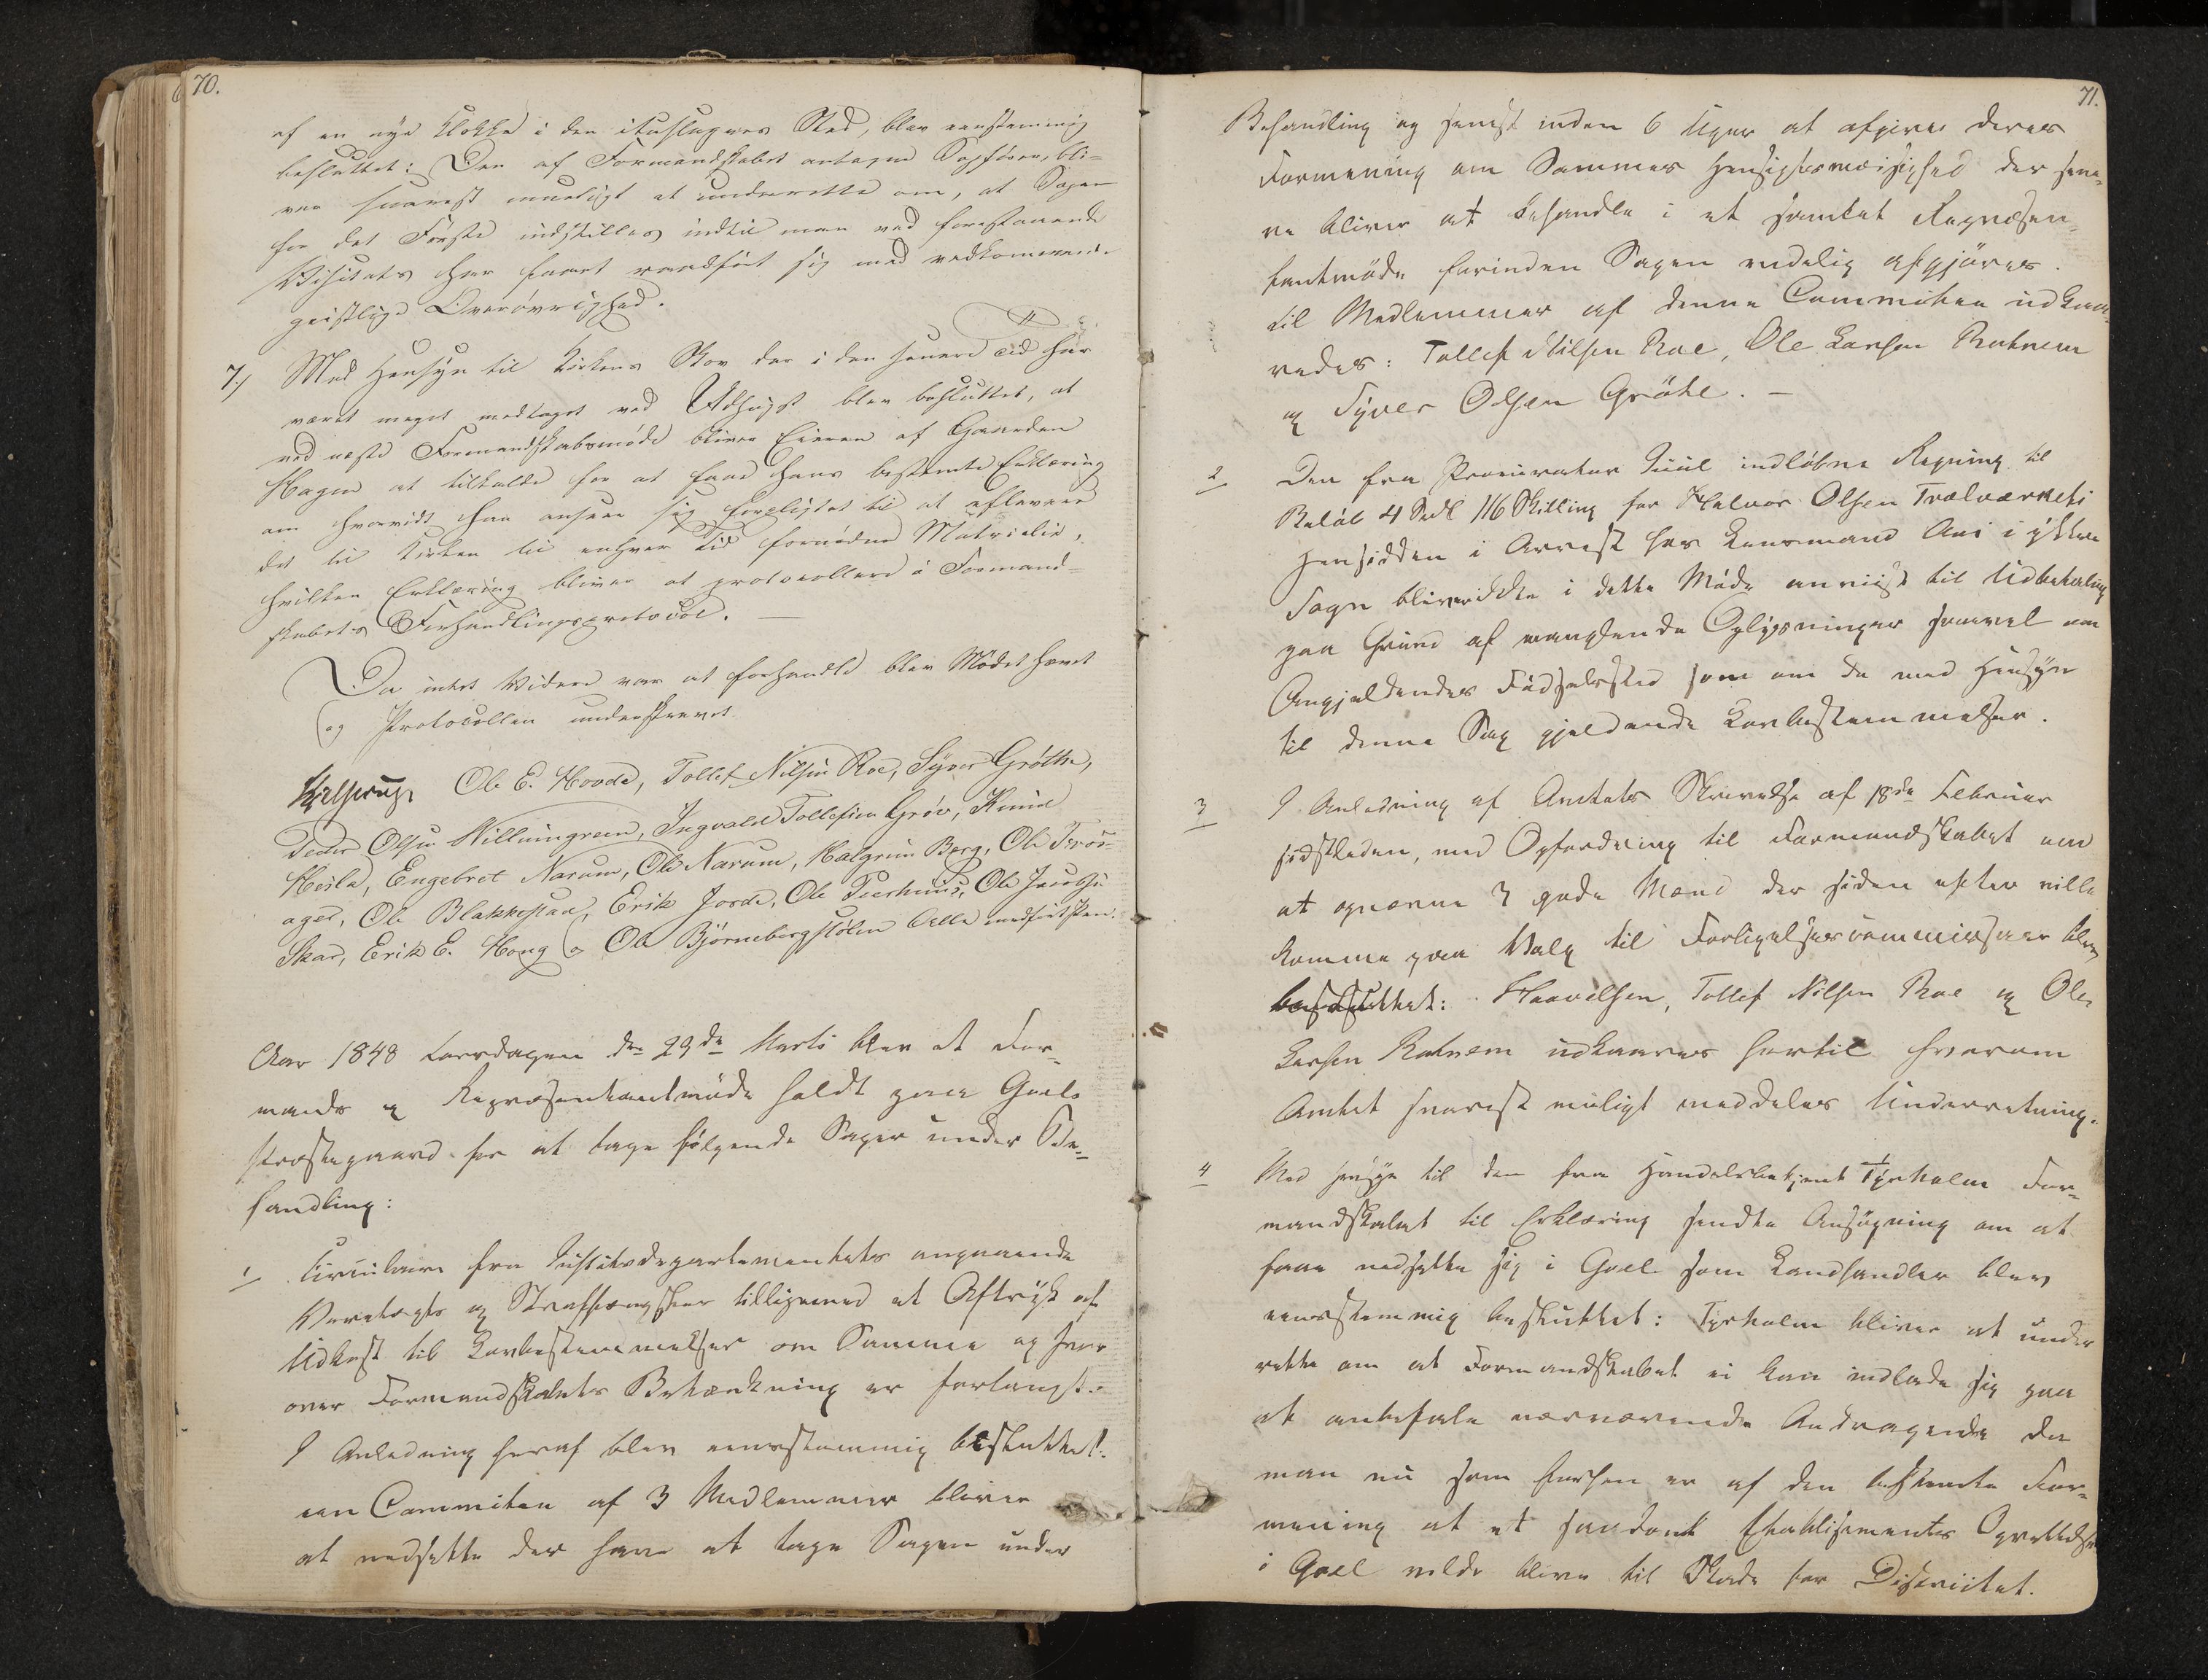 70.
af en nye Klokke i den itaslagnes Sted, blev eenstemmig
besluttet: Den af Formandskabet antagne Sagfører, bli-
ver snarest mueligt at underrette om, at Sagen
for det Første indstilles indtil man ved forestaaende
Visitats har faaet raadført sig med vedkommende
geistlige Overøvrighed.
7.) Med Hensyn til Kirkens Skov der i den senere Tid har
været meget medtaget ved Udhugst blev besluttet, at
ved næste Formandskabsmøde bliver Eieren af Gaarden
Hagen at tilkalde for at faae hans bestemte Erklæring
om hvorvidt han anseer sig forpligtet til at aflevere
det til Kirken til enhver Tid fornødne Materialie,
hvilken Erklæring bliver at protocollere i Formand-
skabets Forhandlingsprotocol. —
Da intet videre var at forhandle blev Mødet hævet
og Protocollen underskrevet
Ole E. Hovde, Tollef Nilsen Roe, Syver Grøthe,
Peder Olsen Villumgreen, Ingvald Tollefsen Grøv,
Hesla, Engebret Narum, Ole Narum, Halgrim Berg, Ole
ager, Ole Blakkestad, Erik Jorde, Ole Ole Jacobsen
Skar, Erik E. Houg og Ole Bjørnebergstølen Alle med ført Pen.
Aar 1848 Løverdagen den 29de Marts blev et For-
mands og Repræsentantmøde holdt paa Goels
Præstegaard for at tage følgende Sager under Be-
handling:
1 Circulaire fra Justitsdepartementets angaaende
Varetægts og Straffængsler tilligemed et Aftryk af
Udkast til Lovbestemmelser om Samme og hvor
over Formandskabets Betænkning er forlangt.
I Anledning heraf blev eensstemmig besluttet:
een Committee af 3 Medlemmer bliver
at nedsætte der have at tage Sagen under
71.
Behandling og senest inden 6 Uger at afgive deres
Formening om Sammes Hensigtsmæssighed der sene-
re bliver at behandle i et samlet Repræsen-
tantmøde forinden Sagen endelig afgjøres.
til Medlemmer af denne Committee udkaa-
redes: Tollef Nilsen Roe, Ole Larsen Rotnem
og Syver Olsen Grøte. —
2 Den fra Procurator Juul indløbne Regning til
Beløb 4 Spdl 116 Skilling for Halvor Olsen Trælværkets
Hensidden i Arrest hos Lensmand
Sogn bliver ikke i dette Møde anviist til Udbetaling
paa Grund af manglende Oplysninger saavel om
Angjældendes Fødselssted som om de med Hensyn
til denne Sag gjeldende Lovbestemmelser.
3 I Anledning af Amtets Skrivelse af 18de Februar
sidstleden, med Opfordring til Formandskabet om
at opnævne 3 gode Mænd der siden efter ville
komme paa Valg til Forligelsescommissair blev
besluttet: Haavelsen, Tollef Nilsen Roe og Ole
Larsen Rotnem udkaares hertil hvorom
Amtet snarest muligt meddeles Underretning.
4 Med Hensyn til den fra Handelsbetjent Tyrholm For-
mandskabet til Erklæring sendte Ansøgning om at
faae nedsætte sig i Goel som Landhandler blev
eensstemmig besluttet: Tyrholm bliver at under
rette om at Formandskabet ei kan indlade sig paa
at anbefale nærværende Andragende da
man nu som forhen er af den bestemte For-
mening at et saadant Etablisements Oprettelse
i Goel vilde blive til Skade for Districtet.